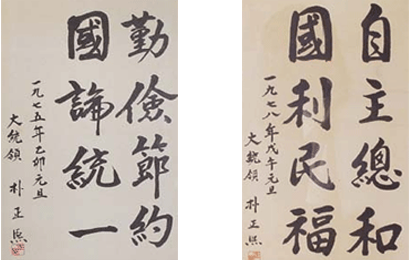 勤儉節約
國論統一
一九七五年乙卯元旦
大統領 朴正熙
自主總和
國利民福
一九七八年戊午元旦
大統領 朴正熙